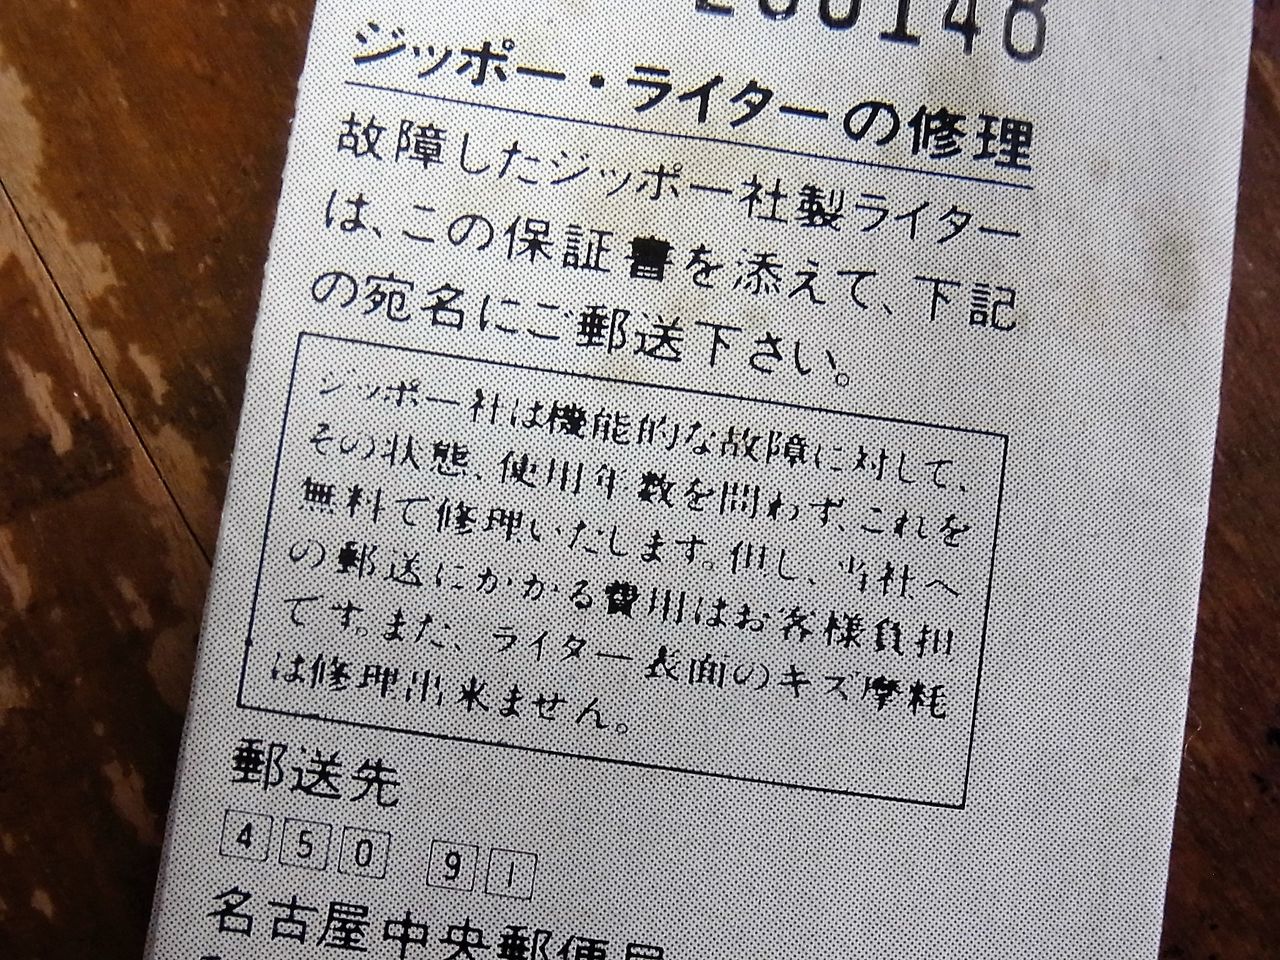 ジッポー・ライターの修理
故障したジッポー社製ライター
は、この保証書を添えて、下記
の宛名にご郵送下さい。
ジッポー社は機能的な故障に対して、
その状態、使用年数を問わず、これを
無料で修理いたします。但し、当社へ
の郵送にかかる費用はお客様負担
です。また、ライター表面のキズ摩耗
は修理出来ません。
郵送先
450 91
名古屋中央郵便局